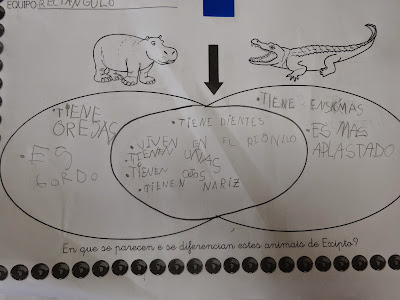 EQUIPO RECTÁNGULO
• TIENE
OREJAS
• ES
GORDO
• TIENE DIENTES
• VIVEN EN EL RIO NILO
• TIENEN UÑAS
• TIENEN OJOS
• TIENEN NARIZ
• TIENE ENSIGMAS
• ES MAS
APLASTADO
En que se parecen e se diferencian estes animais de Exipto?